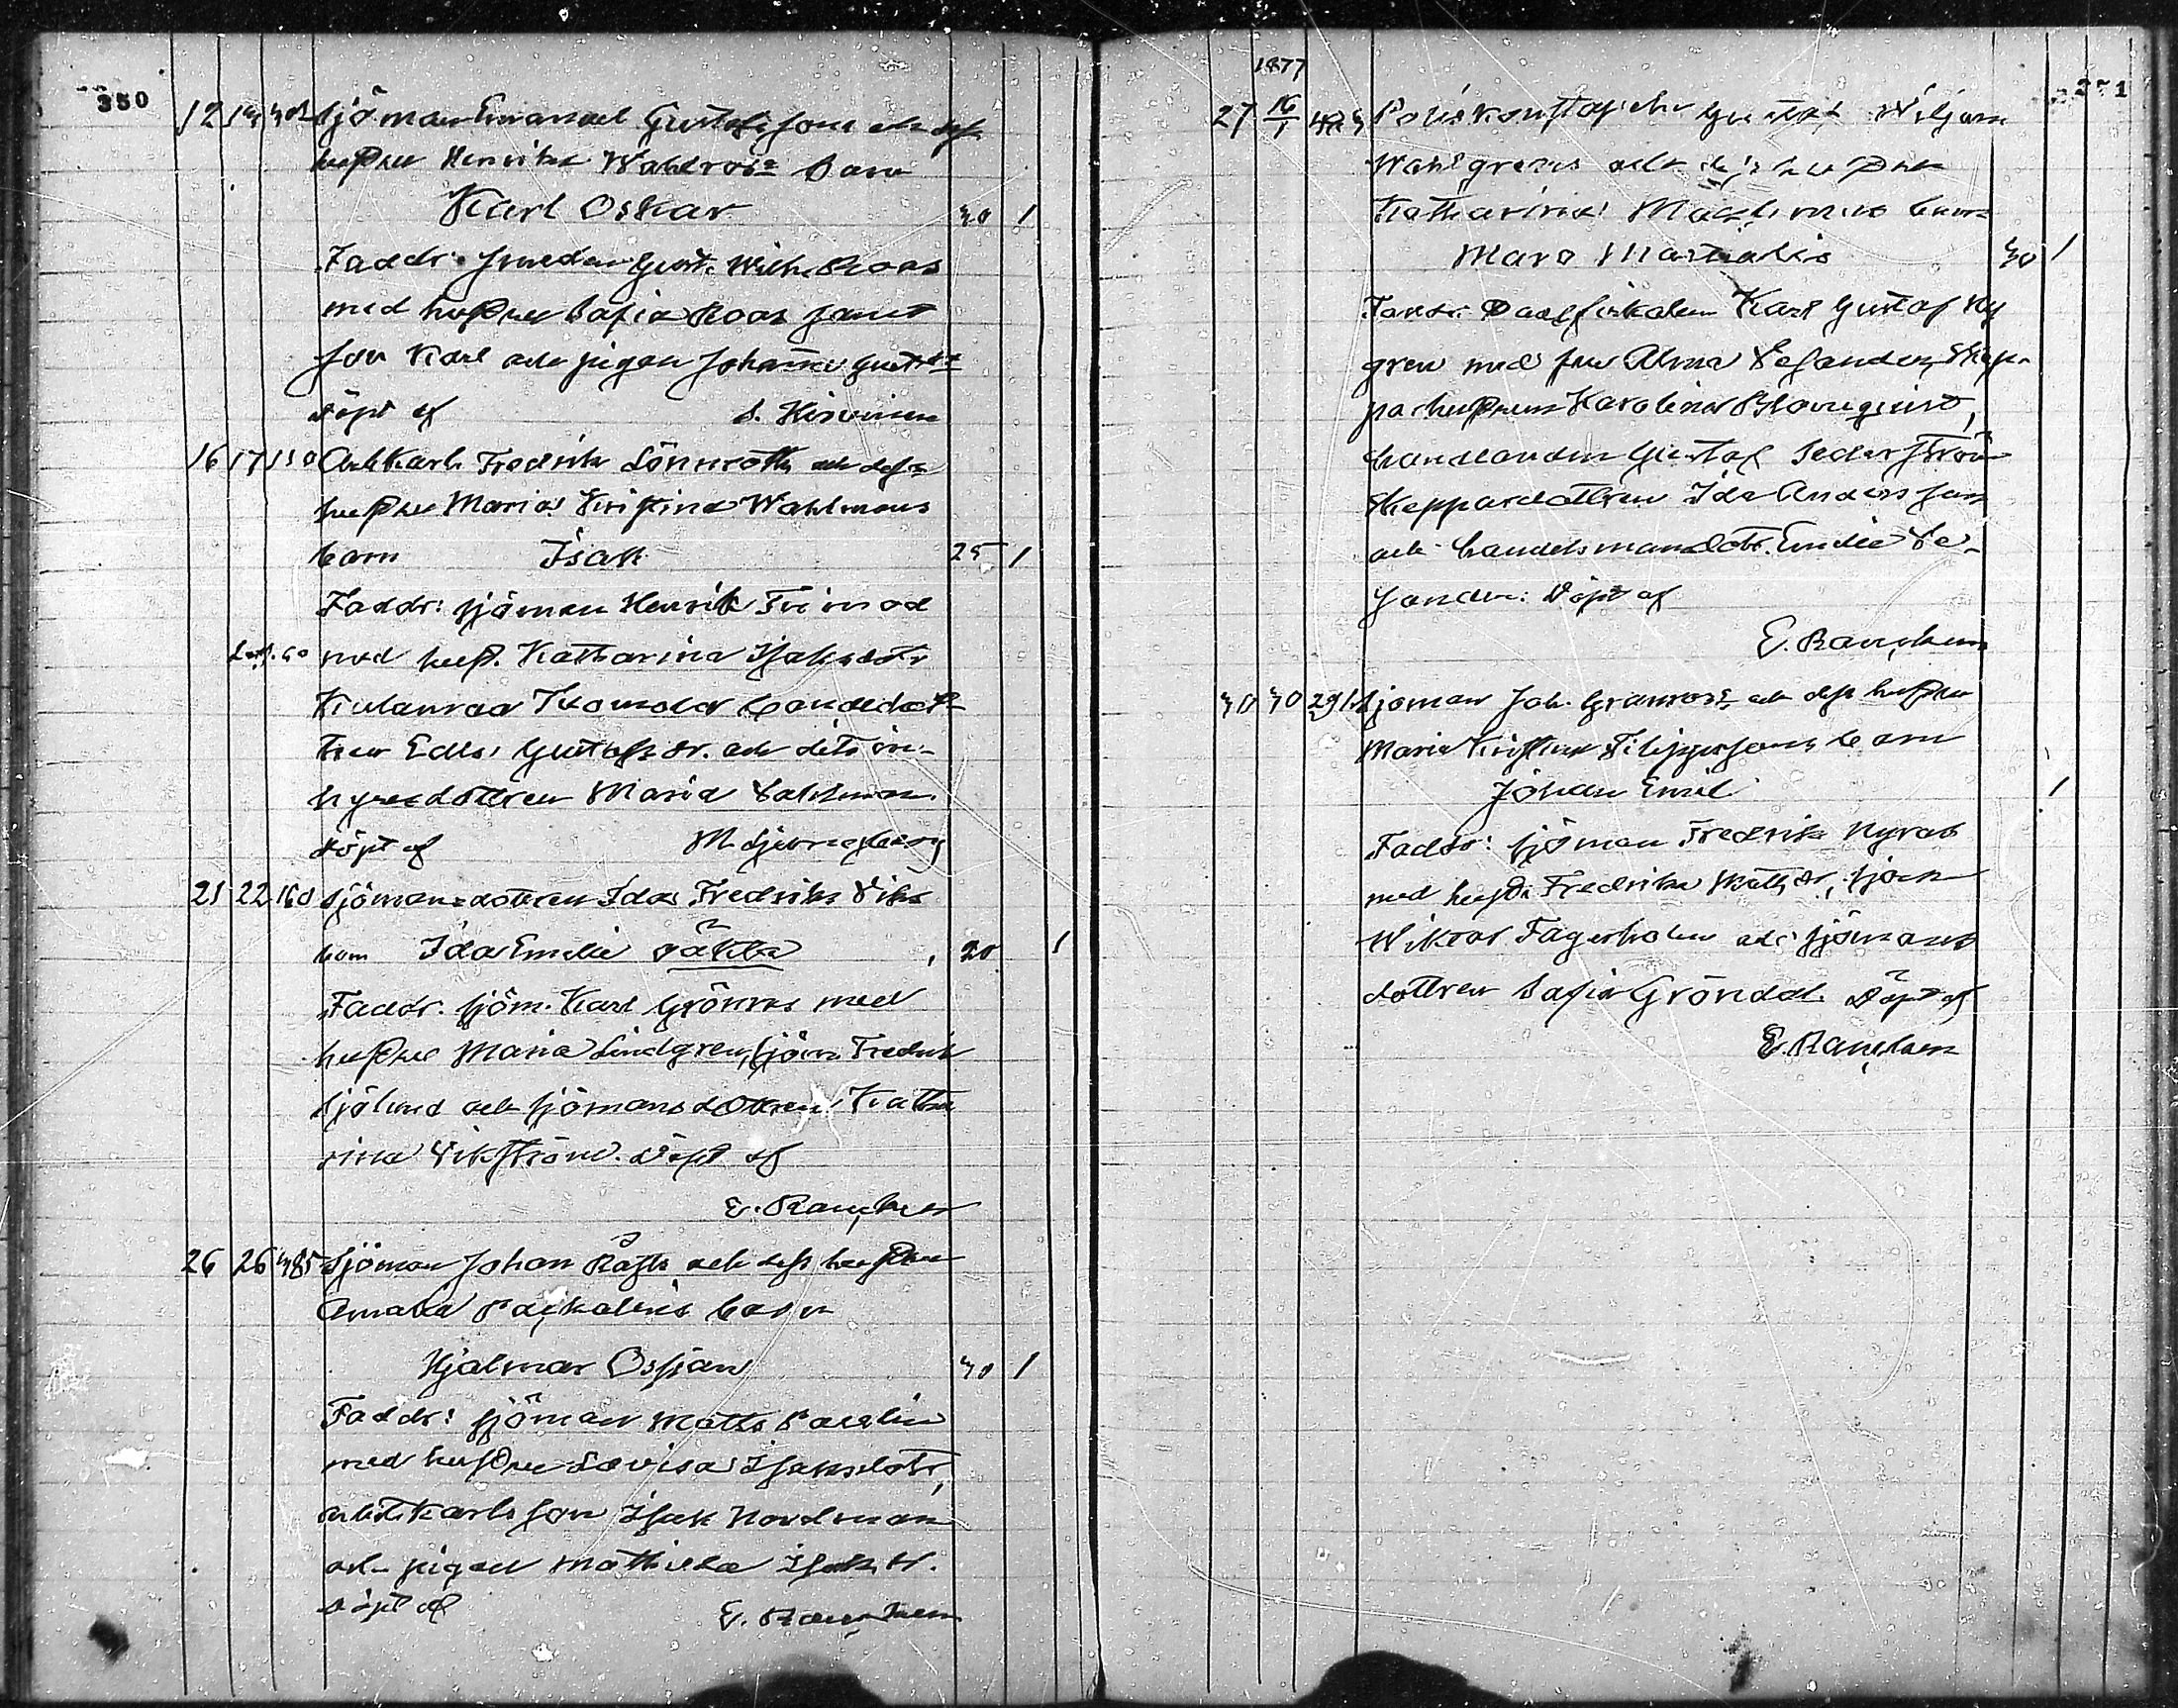 350
12 14 Sjöman Emanuel Gustafsson och dess
hustru Henrika Wahlroos Barn
Karl Oskar 30 1
Faddr: smeden Gust. Wilh. Roos
med hustru Sofia Roos samt
son Karl och pigan Johanna
Döpt af S. Hirvinen
16 17 150 Arb.karl Fredrik Lönnroth och dess
hustru Maria Kristina Wahlmans
barn Isak 25 1
Faddr: sjöman Henrik
med hust. Katharina Isaksdotr
bondedot-
tren Edla Gustafsdr. och dito in-
hyresdottren Maria
döpt af M. Ljungberg
21 22 160 Sjömansdottren Ida Fredrika Viks
barn Ida Emelie oäkta 20 1
Faddr. sjöm. Karl Grönros med
hustru Maria Lindgren, sjöm. Fredrik
Sjölund och sjömansdottren Katha
rina Vikström. Döpt af
E. Rancken
26 26 385 Sjöman Johan Råfts och dess hustru
Amalia Packalens barn
Hjalmar Ossian 30 1
Faddr: sjöman Matts Paulin
med hustru Lovisa Isaksdotr,
arbetskarls son Isak Nordman
och pigan Mathilda Isaksdr.
Döpt af E. Rancken
1877
27 16/1 Poliskonstapeln Gustaf Wiljam
Wahlgrens och dess hustru
Katharina barn
30 1
Faddr: Karl Gustaf Ny
gren med fru Alma Sefander, Skep-
parhustrun Karolina Blomqvist,
handlanden Gustaf Sederström
Skeppardottren Ida Andersson
och handelsmansdotr. Emilie Se-
fander. Döpt af
E. Rancken
30 30 291 Sjöman Joh. Granroos och dess hustru
Maria Kristina Filippssons barn
Johan Emil 1
Faddr: sjöman Fredrik Nyroos
med hustr. Fredrika Mattsdr, sjöm
Wiktor Fagerholm och sjömans
dottren Sofia Gröndal. Döpt af
E. Rancken